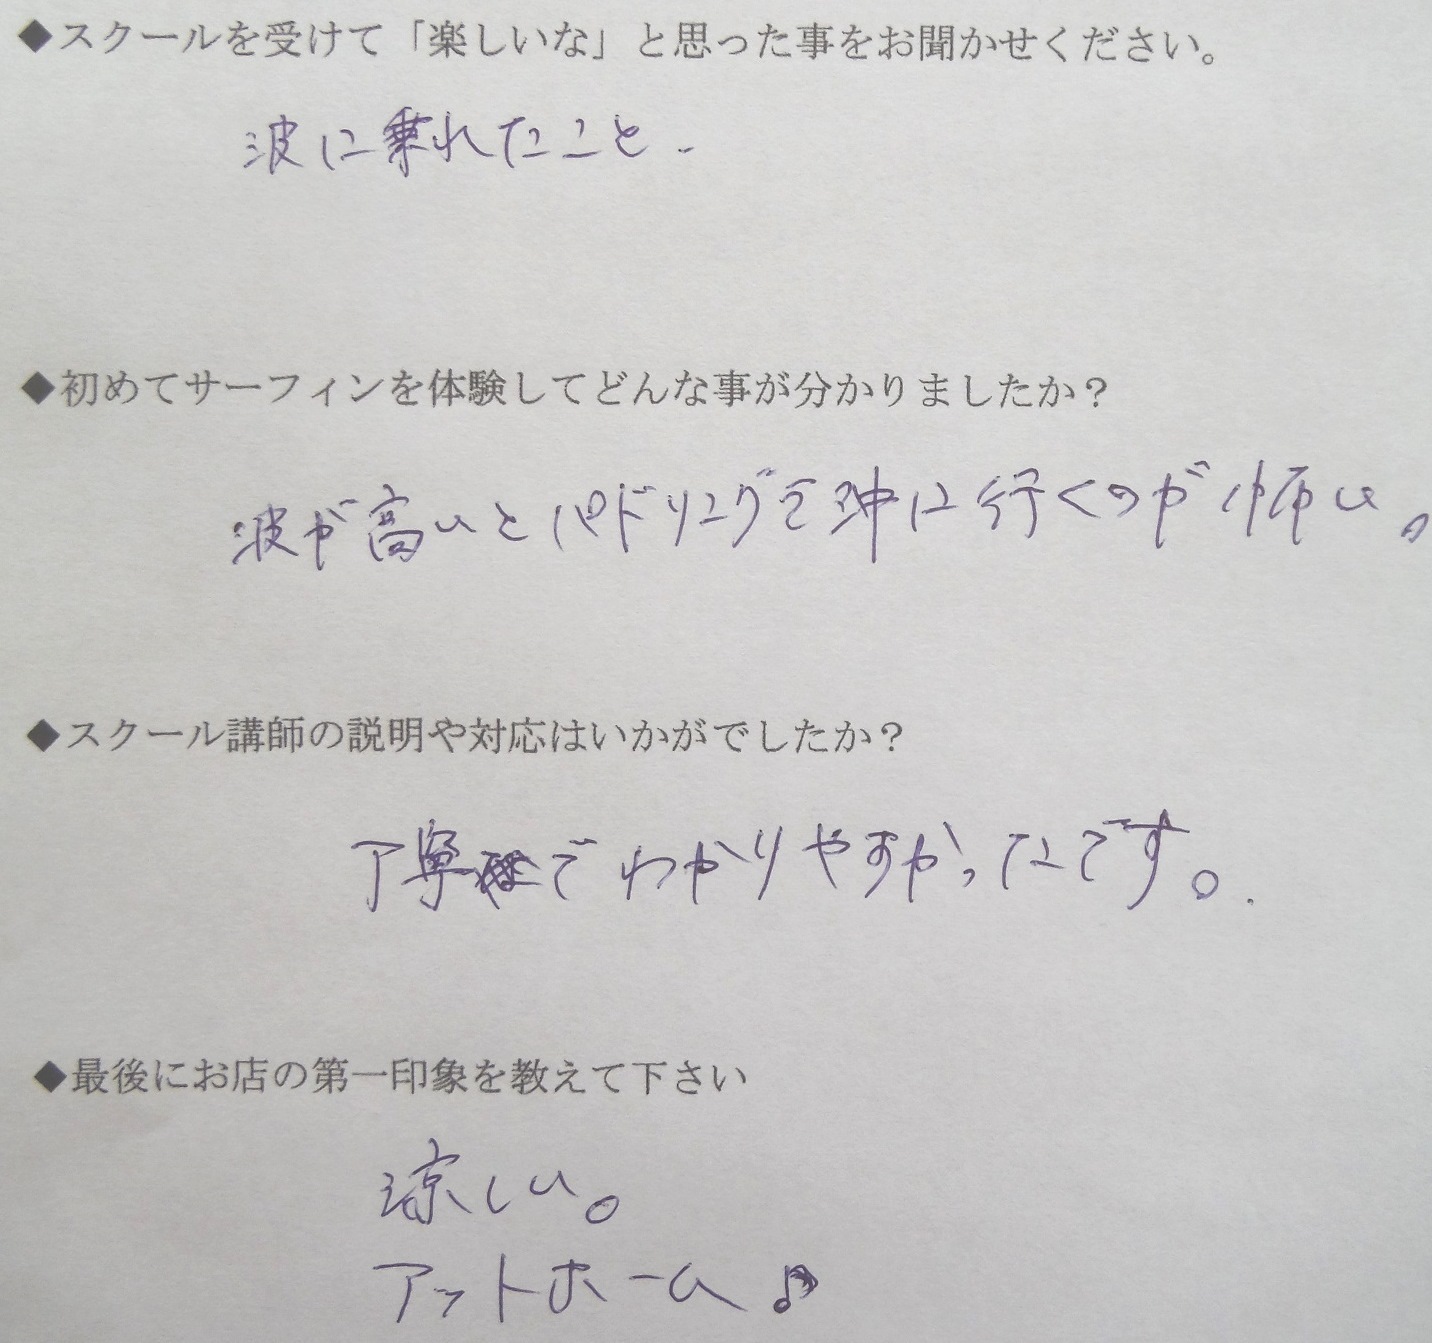 ◆スクールを受けて「楽しいな」と思った事をお聞かせください。
波に乗れたこと.
◆初めてサーフィンを体験してどんな事が分かりましたか？
波が高いとパドリングで沖に行くのが怖い。
◆スクール講師の説明や対応はいかがでしたか？
丁寧でわかりやすかったです。.
◆最後にお店の第一印象を教えて下さい
涼しい。
アットホーム♪